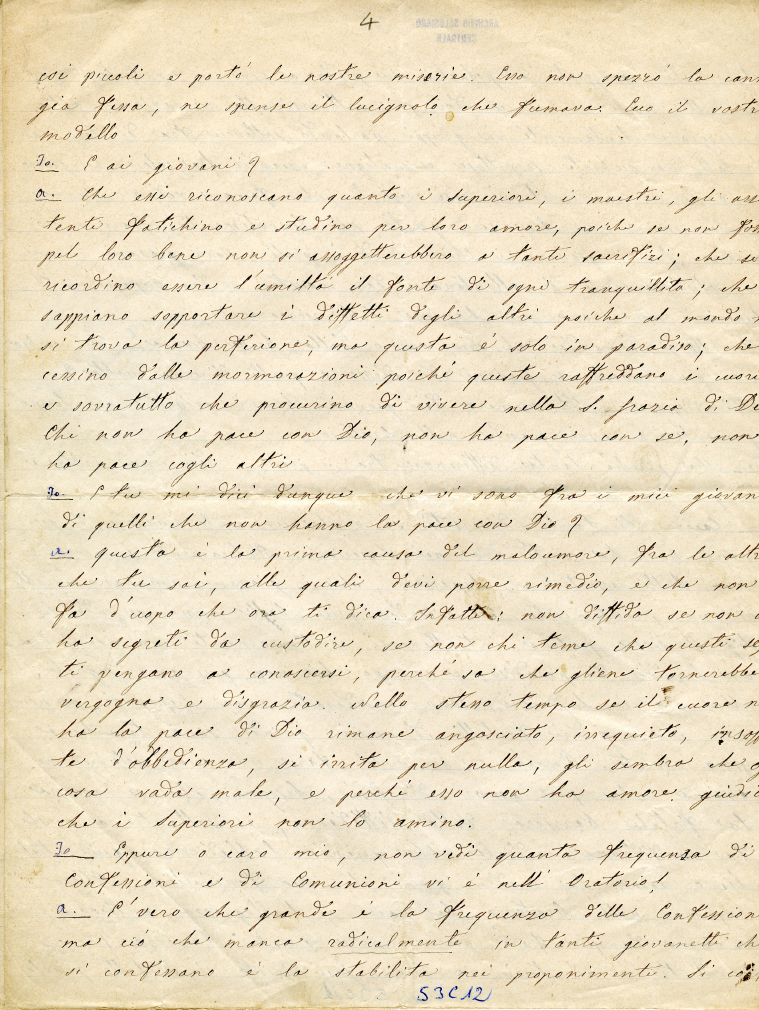 4
ARCHIVIO SALESIANO
CENTRALE
coi piccoli e portò le nostre miserie. Esso non spezzò la cann
già fessa, nè spense il lucignolo che fumava. Ecco il vostr
modello
Io. E ai giovani?
a. Che essi riconoscano quanto i Superiori, i maestri, gli assi
tenti fatichino e studino per loro amore, poichè se non foss
pel loro bene non si assoggetterebbero a tanti sacrifizi; che se
ricordino essere l'umiltà il fonte di ogni tranquillità; che
sappiano sopportare i diffetti degli altri poichè al mondo n
si trova la perfezione, ma questa è solo in paradiso; che
cessino dalle mormorazioni poichè queste raffreddano i cuori
e sovratutto che procurino di vivere nella S. Grazia di Di
Chi non ha pace con Dio, non ha pace con se, non
ha pace cogli altri
Io. E tu mi dici dunque che vi sono fra i miei giovan
di quelli che non hanno la pace con Dio?
a. Questa è la prima causa del malumore, fra le altr
che tu sai, alle quali devi porre rimedio, e che non
fa d'uopo che ora ti dica. Infatti: non diffida se non c
ha segreti da custodire, se non chi teme che questi seg
ti vengano a conoscersi, perchè sa che gliene tornerebbe
vergogna e disgrazia. Nello stesso tempo se il cuore n
ha la pace di Dio rimane angosciato, irrequieto, insoff
te d'obbedienza, si irrita per nulla, gli sembra che o
cosa vada male, e perchè esso non ha amore, giudic
che i Superiori non lo amino.
Io Eppure o caro mio, non vedi quanta frequenza di
Confessioni e di Comunioni vi è nell' Oratorio!
a. E' vero che grande è la frequenza delle Confession
ma ciò che manca radicalmente in tanti giovanetti ch
si confessano è la stabilità nei proponimenti. Si
S3C12